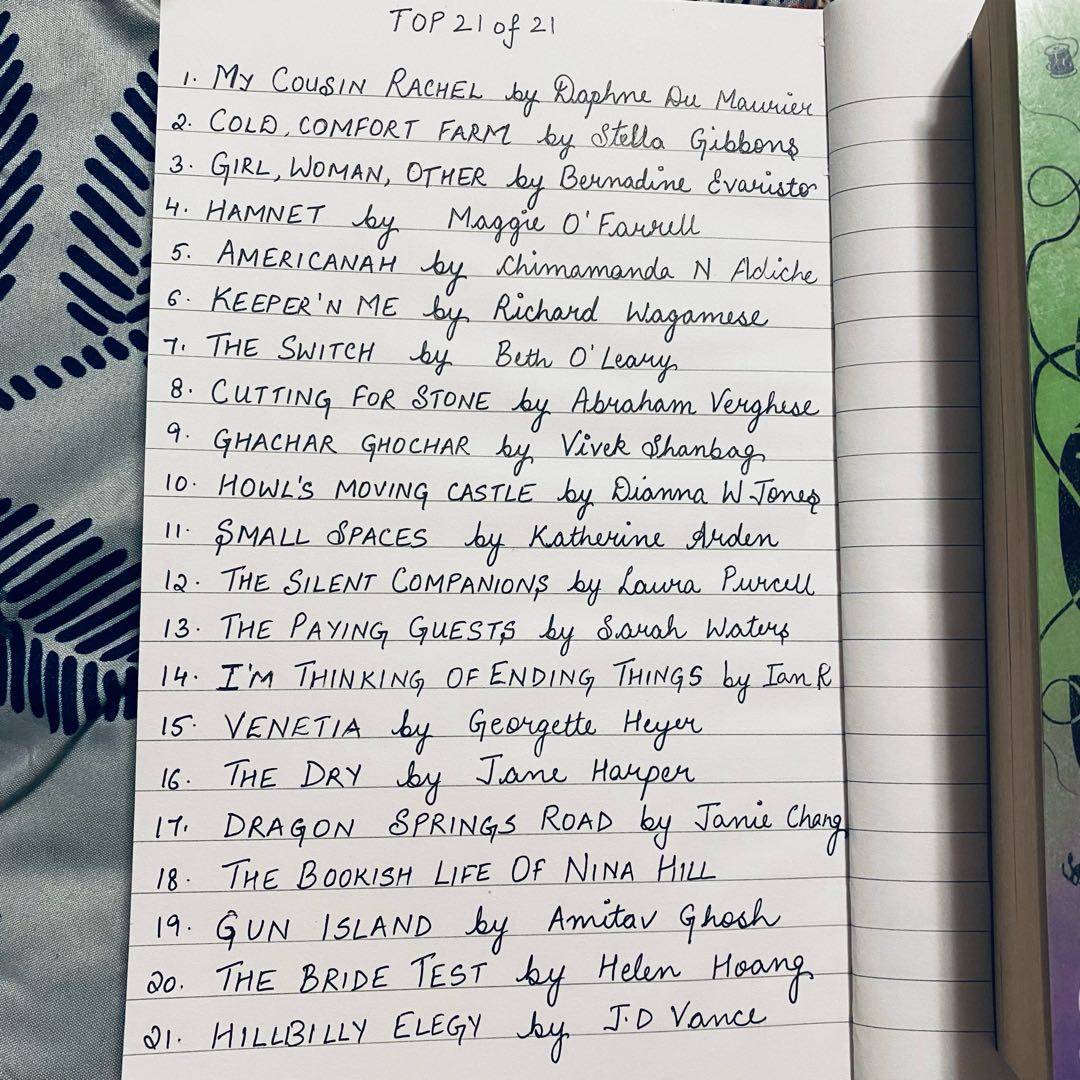 TOP 21 of 21
1. MY COUSIN RACHEL by Daphne Du Maurier
2. COLD, COMFORT FARM by Stella Gibbons
3. GIRL, WOMAN, OTHER by Bernadine Evaristo
4. HAMNET by Maggie O'Farrell
5. AMERICANAH by Chimamanda N Adiche
6. KEEPER'N ME by Richard Wagamese
7. THE SWITCH by Beth O'Leary
8. CUTTING FOR STONE by Abraham Verghese
9. GHACHAR GHOCHAR by Vivek Shanbag
10. HOWL'S MOVING CASTLE by Dianna W Jones
11. SMALL SPACES by Katherine Arden
12. THE SILENT COMPANIONS by Laura Purcell
13. THE PAYING GUESTS by Sarah Waters
14. I'M THINKING OF ENDING THINGS by Ian R
15. VENETIA by Georgette Heyer
16. THE DRY by Jane Harper
17. DRAGON SPRINGS ROAD by Janie Chang
18. THE BOOKISH LIFE OF NINA HILL
19. GUN ISLAND by Amitav Ghosh
20. THE BRIDE TEST by Helen Hoang
21. HILLBILLY ELEGY by J.D Vance